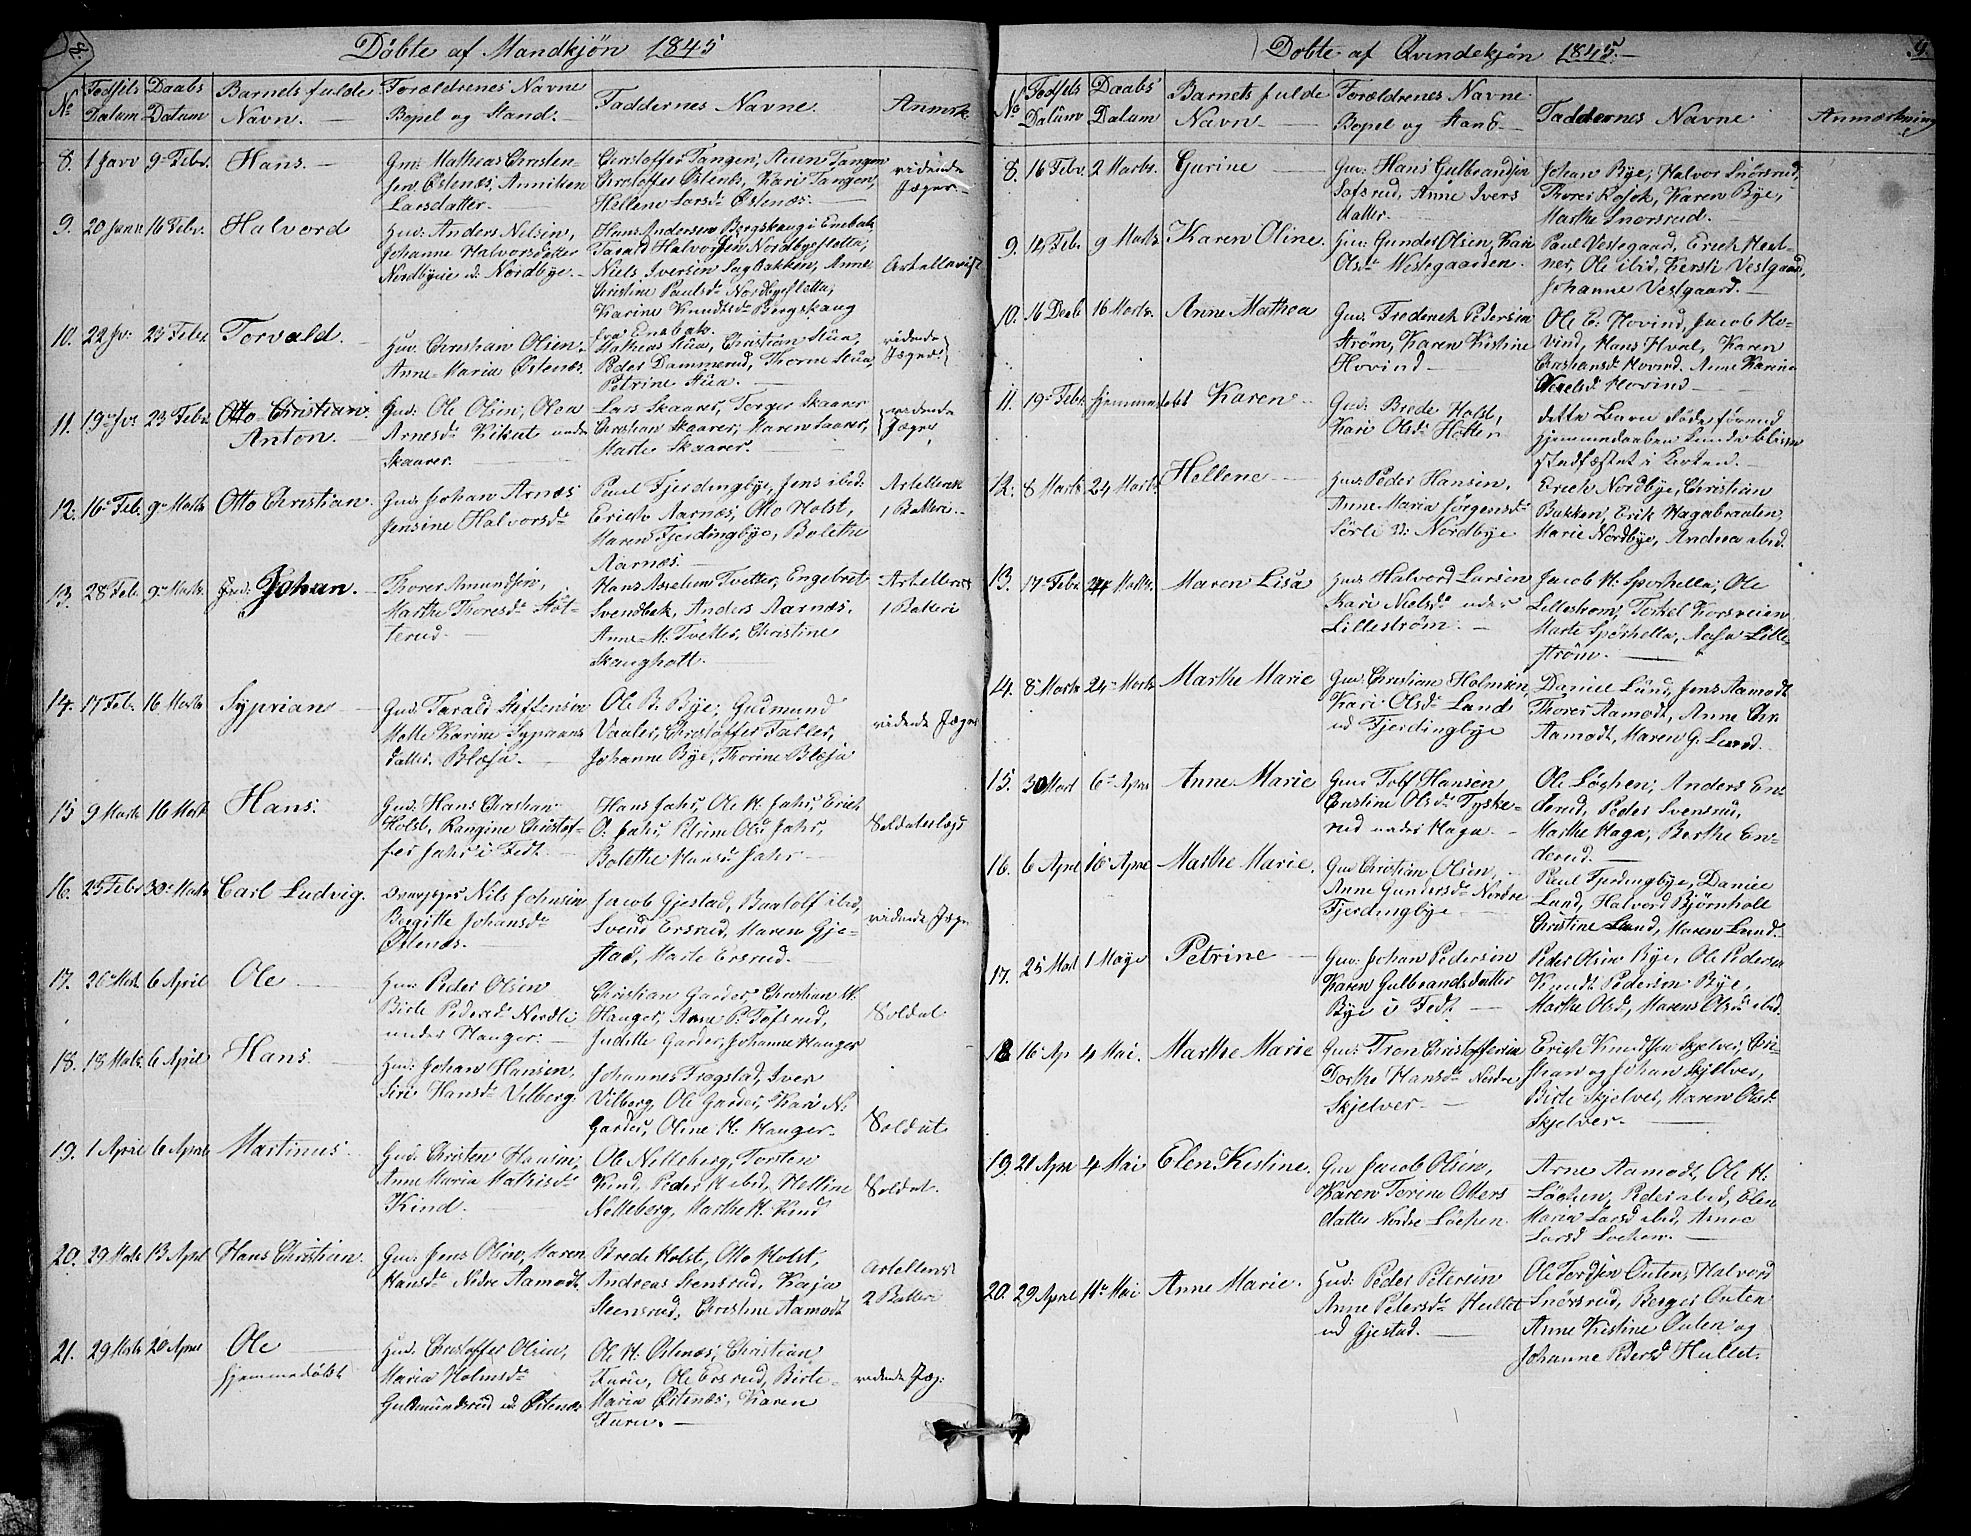 8.
Døbte af Mandkjøn 1845
No Fødsels Datum
Daabs Datum
Barnets fulde Navn.
Forældrenes Navne Bopel og Stand.
Faddernes Navne
Anmrk.
8. 1 Janv 9 Febr. Hans.
Gm: Mathias Christensen Østenæs, Anniken
Larsdatter.
Christoffer Tangen,
Christoffer Østenæs, Kari Tangen,
Hellene Larsd. Østenæs.
ridende Jæger.
9. 20 Janv 16 Febr. Halvord
Gm: Anders Nilsen,
Johanne Halvorsdatter
Nordbyeie u: Nordbye.
Hans Andersen Bergskaug i Enebak,
Tarald Halvorsen Nordbysletta,
Niels Iversen Sagbakken, Anne
Christine Paulsd. Nordbysletta,
Karine Knudtsd. Bergskaug
fra Enebak.
10. 22 Jv: 23 Febr. Torvald.
Gm: Christian Olsen
Anne Maria Østenæs.
Mathias Stua, Christian Stua,
Peder Dammerud, Thorine Stua,
Petrine Stua.
ridende Jæger
11. 19 Jv: 23 Febr. Otto Christian
Anton.
Gm: Ole Olsen, Olea
Arnesd. Kikut under
Skaarer.
Lars Skaarer, Torger Skaarer
Christian Skaarer, Karen Skaarer,
Marte Skaarer.
ridende Jæger
12. 16 Feb. 9 Marts Otto Christian.
Gm: Johan Arnæs
Jensine Halvorsd.
Paul Fjerdingbye, Jens ibid:
Erich Aarnæs, Otto Holst,
Maren Fjerdingbye, Bolethe
Aarnæs.
1 Batteri.
13. 28 Feb. 9 Marts Johan.
Thorer Amundsen,
Marthe Thoresd.
Hans Tvetter, Engebret
Svendbek, Anders Aarnæs,
Anne M. Tvetter, Christine
Skaugholt.
1 Batteri
14. 17 Feb. 16 Marts Syprian
Gm: Tarald Steffensen
Mette Karine Syprians
datter Blæsa.
Ole B. Bye, Gudmund
Vaaler, Christoffer Faller,
Johanne Bye, Thorine Blæsa
ridende Jæger
15 9 Marts 16 Marts Hans.
Gm: Hans Christian
Holst, Rangine Christof-
fer Jahr i Fedt.
Hans Jahr, Ole H. Jahr, Erich
O. Jahr, Petrine Olsd. Jahr,
Bolethe Hansd. Jahr
16. 25 Febr 30 Marts Carl Ludvig.
Nils Johnsen
Bergitte Johansd.
Østenæs.
Jacob Gjestad, ibid,
Svend Ersrud, Maren Gje-
stad, Marte Ersrud.
ridende Jæger
17. 26 Marts 6 April Ole
Gm: Peder Olsen
Birte Pedersd. Nordli
under Hanger.
Christian Garder, Christian H.
Hanger, Anne P. Tofsrud,
Judithe Garder, Johanne Hanger
Soldat
18. 18 Marts 6 April Hans
Gm: Johan Hansen,
Siri Hansd. Vilberg.
Johannes Frægstad, Iver
Vilberg, Ole Garder, Kari N.
Garder, Oline H. Hanger.
Soldat
19. 1 April 6 April Martinus
Gm: Christen Hansen,
Anne Maria Mathisd.
Kind.
Ole Nelleberg, Torsten
Kind, Peder H ibid, Helline
Nelleberg, Marthe H. Kind
Soldat.
20. 29 Marts 13 April Hans Christian.
Gm: Jens Olsen, Maren
Hansd. Nedre Aamodt.
Brede Holst, Otto Holst,
Andreas Steensrud, Kaja
Steensrud, Christine Aamodt
2 Batteri
21. 29 Marts 20 April Ole
hjemmedøbt
Gm: Christoffer Olsen,
Maria Holmsd.
Guldmundsrud u: Østenæs
Ole H. Østenæs, Christian
Furu, Ole Ersrud, Birte
Maria Østenæs, Karen
Furu.
ridende Jæg:
9.
Døbte af Qvindekjøn 1845.
No Fødsels Datum
Daabs Datum
Barnets fulde Navn
Forældrenes Navne Bopel og Stand
Faddernes Navne
Anmærkning
8. 16 Febr. 2 Marts. Gurine
Gm: Hans Gulbrandsen
Tofsrud, Anne Ivers
datter.
Johan Bye, Halvor Snørsrud,
Thorer Kosok, Karen Bye,
Marthe Snørsrud.
9. 14 Feb. 9 Marts. Karen Oline.
Gm: Gunder Olsen, Kari
Olsd. Westegaarden.
Paul Vestegaard, Erich
Ole ibid, Kersti Vestgaard,
Johanne Vestgaard.
10. 16 16 Marts. Anne Mathea
Gm: Frederich Pedersen
Strøm, Karen Kristine
Hovind
Ole E. Hovind, Jacob Ho-
vind, Hans Hval, Karen
Christiansd. Hovind. Anne Karine
Hovind
11. 19 Febr. hjemmedøbt Karen
Gm: Brede Holst,
Kari Olsd. Holter
dette Barn døde førend
hjemmedaaben kunde blive
stadfæstet i Kirken.
12. 8 Marts 24 Marts. Hellene
Gm: Peder Hansen,
Anne Maria Jørgensd.
Sørli u: Nordbye
Erich Nordbye, Christian
Bakken, Erik Hagabraaten
Marie Nordbye, Andrea ibid.
13. 17 Febr 24 Marts. Maren Lisa
Gm: Halvord Larsen
Kari Nielsd. under
Lillestrøm.
Jacob H. Sporhella, Ole
Lillestrøm, Torkel Korsveien
Marte Sporhella, Aasa Lille-
strøm.
14. 8 Marts 24 Marts Marthe Marie
Gm: Christian Holmsen,
Kari Olsd. Lund
ud Fjerdingbye
Daniel Lund, Jens Aamodt
Thorer Aamodt, Anne Chr.
Aamodt, Maren G. Lund.
15. 30 Mart 6 April Anne Marie
Gm: Tolf Hansen
Kristine Olsd. Tyske-
rud under Haga.
Ole Løchen, Anders En-
derud, Peder Svensrud,
Marthe Haga, Berthe En-
derud.
16. 6 April 16 April Marthe Marie.
Gm: Christian Olsen,
Anne Gundersd. Nordre
Fjerdingbye
Paul Fjerdingbye, Daniel
Lund, Halvord Bjørnholt
Christine Lund, Maren Lund.
17. 25 Mart 1 Maye Petrine
Gm: Johan Pedersen
Karen Gulbrandsdatter
Bye i Fedt
Peder Olsen Bye, Ole Pedersen
Knudt Pedersen Bye,
Marthe Olsd, Maren Olsd ibid.
18 16 Ap 4 Mai. Marthe Marie
Gm: Tron Christoffersen
Dorthe Hansd. Nordre
Skjelver
Erich Knudsen Skjelver, Cri-
stian og Johan Skjelver,
Birte Skjelver, Maren Olsd.
Skjelver.
19. 21 Apr 4 Mai Elen Kistine.
Gm: Jacob Olsen,
Karen Torine Otters
datter Nordre Løchen
Arne Aamodt, Ole H.
Løchen, Peder ibid, Elen
Maria Larsd ibid, Anne
Larsd Løchen.
20. 29 April 11 Mai Anne Marie.
Gm: Peder Petersen
Anne Petersd. Hullet
ud Gjestad.
Ole Tordsen Outen, Halvord
Snørsrud, Berger Outen
Anne Kistine Outen og
Johanne Pedersd Hullet.